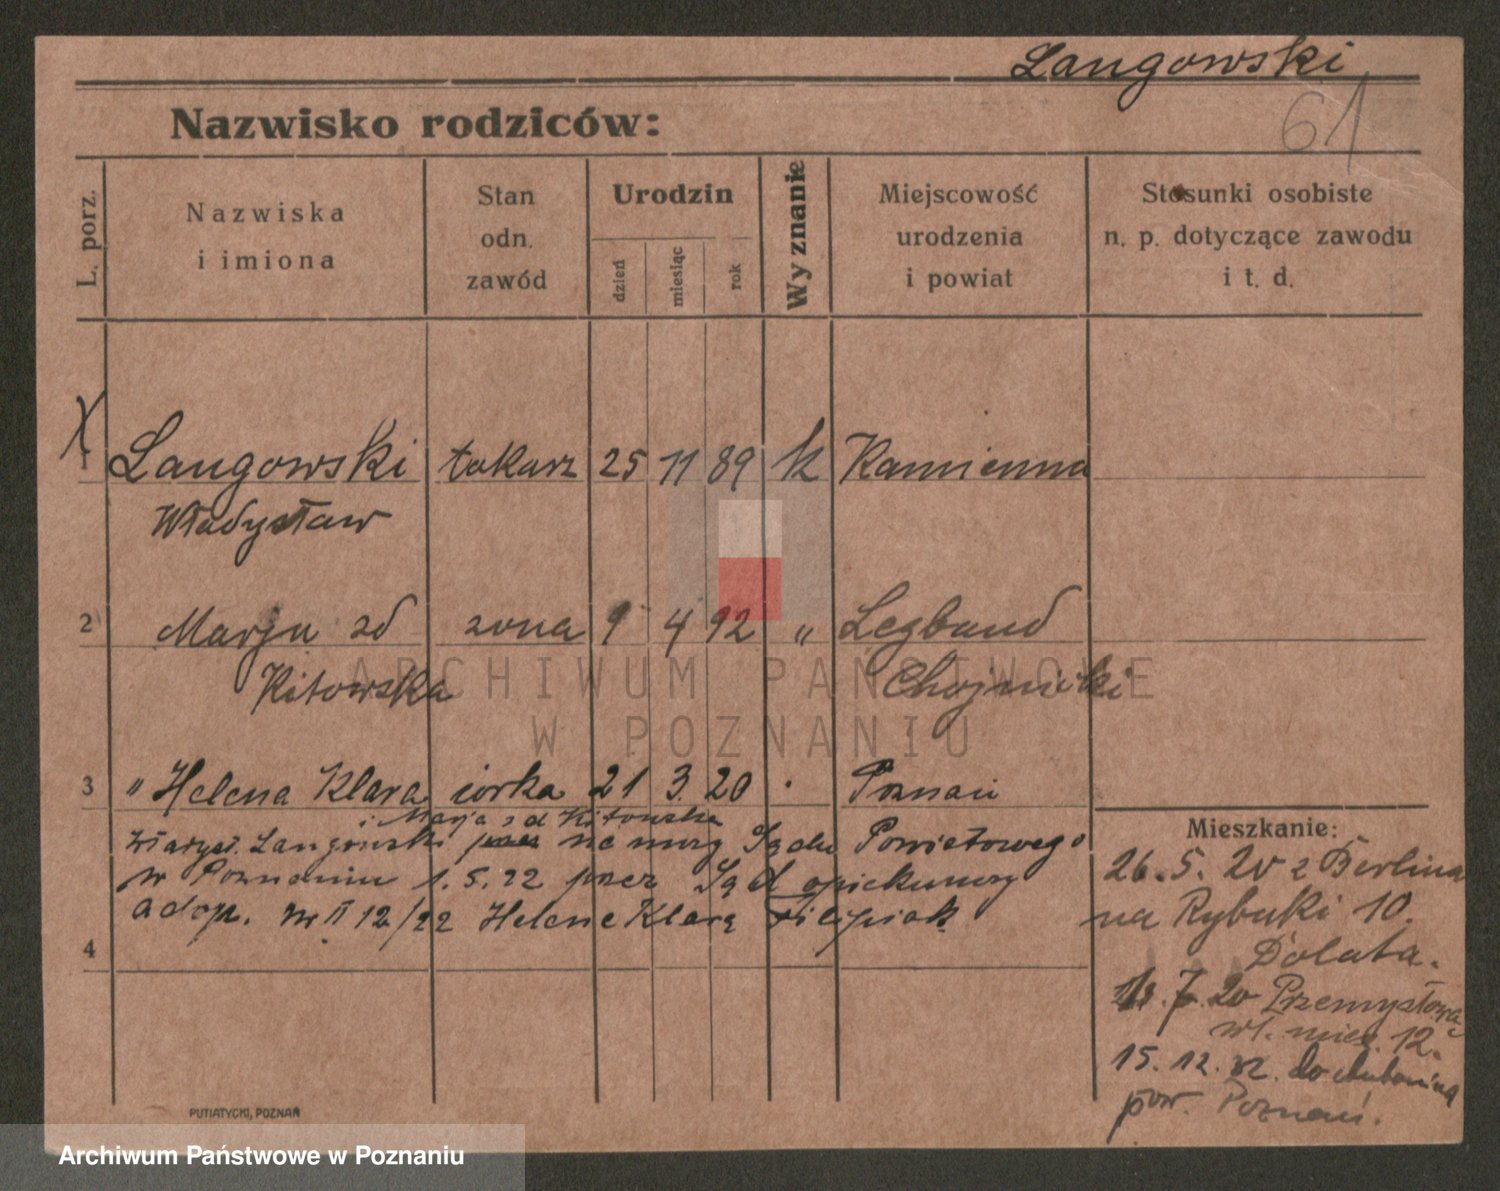 Langowski
61
Nazwisko rodziców:
L. porz.
Nazwiska
i imiona
Stan
odn.
zawód
Urodzin
dzień
miesiąc
rok
Wyznanie
Miejscowość
urodzenia
i powiat
Stosunki osobiste
n. p. dotyczące zawodu
i t. d.
1 Langowski tokarz 25 11 89 k Kamienna
Władysław
2 Marja zd żona 9 4 92 " Legbond
Kitowska Chojnicki
ARCHIWUM PAŃSTWOWE
W POZNANIU
3 " Helena Klara córka 21 3. 20 Poznań
i Marja zd Kitowska
Władysł. Langowski na mocy Sądu Powiatowego
w Poznaniu 1. 5. 22 przez Sąd opiekuńczy
adop. Nr II 12/22 Helenę Klarę Filipiak
4
Mieszkanie:
26. 5. 20 z Berlina
na Rybaki 10.
Dolata.
7. 20 Przemysłowa
12.
15. 12. 32. do Lubonia
pow. Poznań.
PUTIATYCKI, POZNAŃ
Archiwum Państwowe w Poznaniu